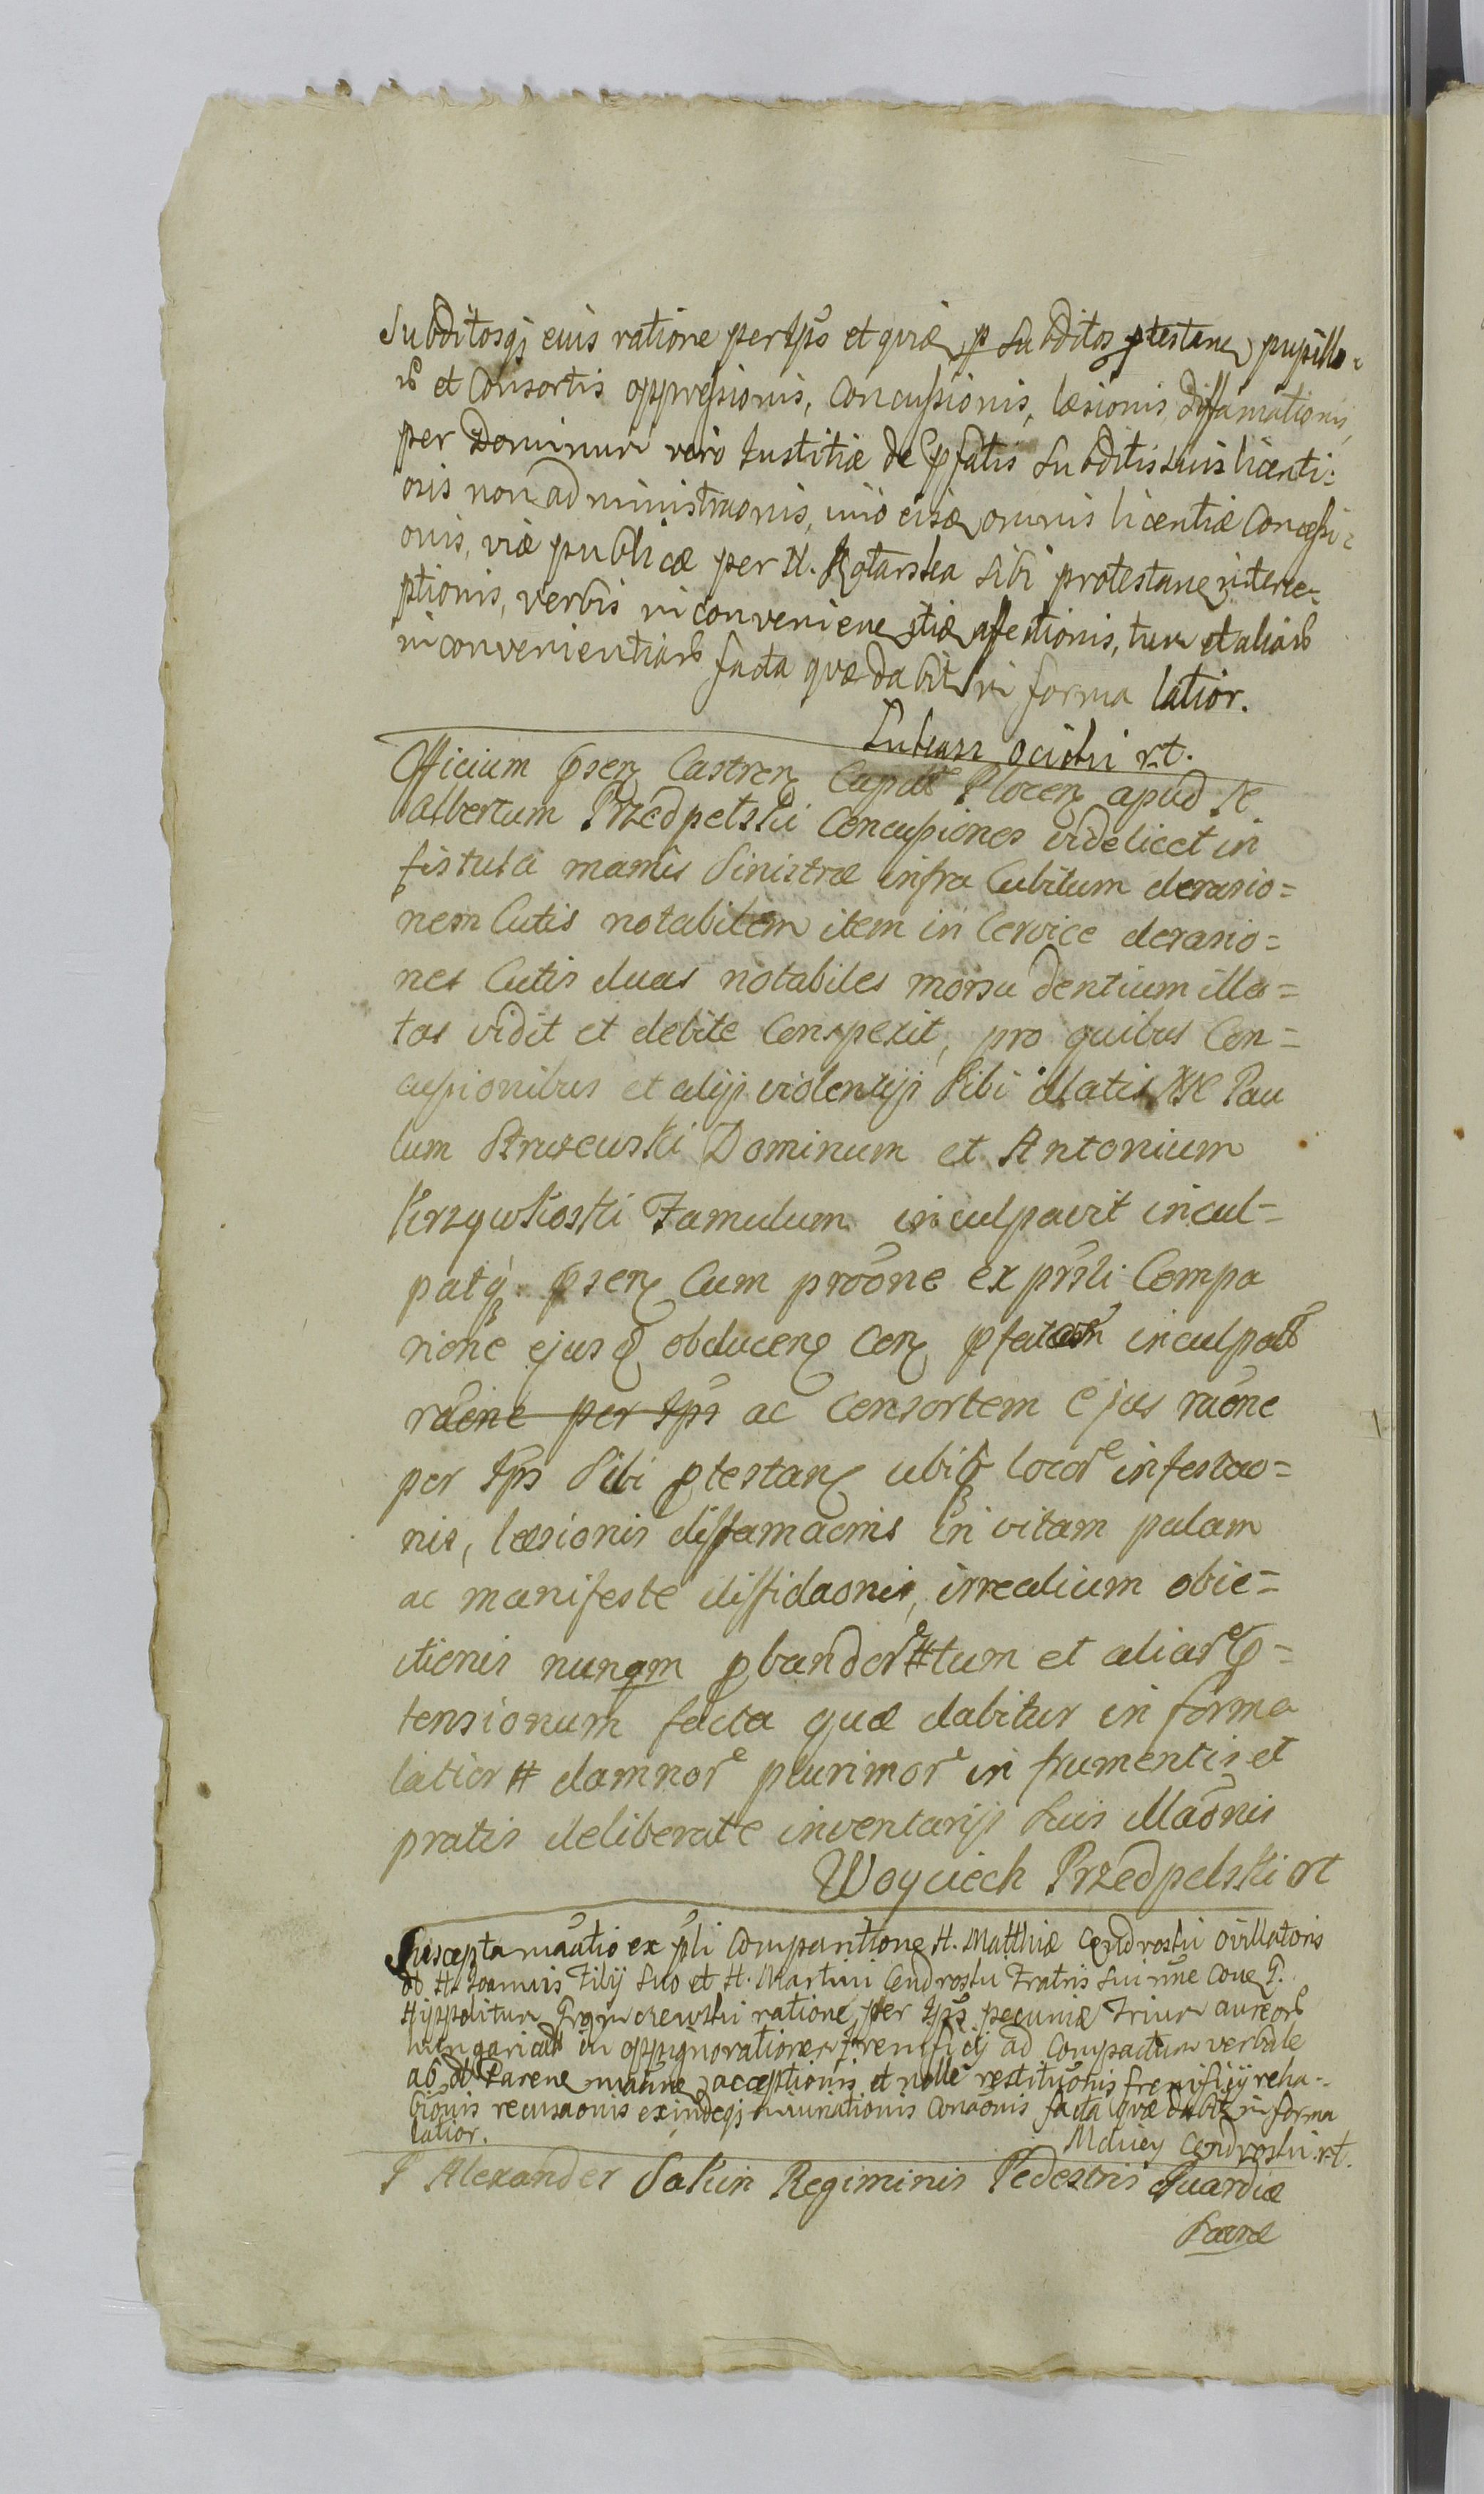 Subditosqȝ eius ratione per Ips et quia p subditos ptestane pupillo=
rum et Consortis oppressionis, Concussionis, læsionis, diffamationis,
per Dominum vero Iustitiæ de pfatis subditis suis licenti:
osis non administraonis, imo eisq omnis licentiæ Concessi=
onis, viæ publicæ per N. Rotarska sibi protestane interce=
ptionis, verbis inconveniene affectionis, tum et aliarum
inconvenientiarum facta quæ dabitur in forma latior.
Lukasz rt.
Officium psen Castren Capitle Plocen apud N
Albertum Przedpelski Concussiones videlicet in
fistula manus Sinistræ infra Cubitum derasio=
nem Cutis notabilem item in Cervice derasio=
nes Cutis duas notabiles morsu dentium illa=
tas vidit et debite Conspexit, pro quibus Con=
cussionibus et alijs violentijs Sibi illatis NN Pau
lum Struzewski Dominum et Antonium
Krzywkoski Famulum inculpavit incul=
patq psen Cum prōone ex prsli Compa
rione ejusd obducen Con pfatum inculpatum
raone per Ips ac Consortem ejus raone
per Ips Sibi ptestan ubiq locor infestao=
nis, læsionis diffamaonis in vitam palam
ac manifeste diffidaonis, irrealium obie=
ctionis nunqm pbandor # tum et aliar p=
tensionum facta quæ dabitur in forma
latior # damnor plurimor in frumentis et
pratis deliberate inventarijs suis illaōnis
Woyciech Przedpelski rt
Suscepta ex pli Comparitione N. Matthiæ Cendroski ovillatoris
N. Joannis Filij suo et N. Martini Cendroski Fratris sui nne cone G.
Hyppolitum ratione per Ips pecuniæ Trium aureorum
hungaricalium in oppignorationem frenificij ad Compactum verbale
ab acceptionis et nolle restituōnis frenificij reha=
bionis recusaonis exindeqȝ Conaonis facta quæ dabitur in forma
latior.
Maciey Cendroski rt.
G Alexander Sakin Regiminis Pedestris Guardiæ
Sacræ